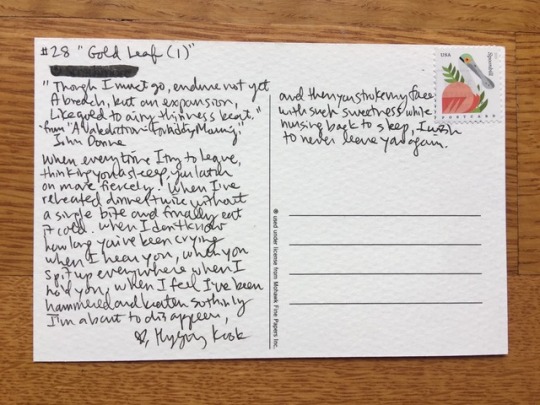 #28 "Gold Leaf (1)"
"Though I must go, endure not yet
A breach, but an expansion,
Like gold to airy thinness beat."
-from "A Valediction: Forbidding Mourning",
John Donne
When every time I try to leave,
thinking you asleep, you latch
on more fiercely. When I've
reheated dinner twice without
a single bite and finally eat
it cold. When I don't know
how long you've been crying
when I hear you, when you
spit up everywhere when I
hold you, when I feel I've been
hammered and beaten so thinly
I'm about to disappear,
and then you stroke my face
with such sweetness while
nursing back to sleep, I wish
to never leave you again.
USA
Spoonbill
POSTCARD
® used under license from Mohawk Fine Papers Inc.